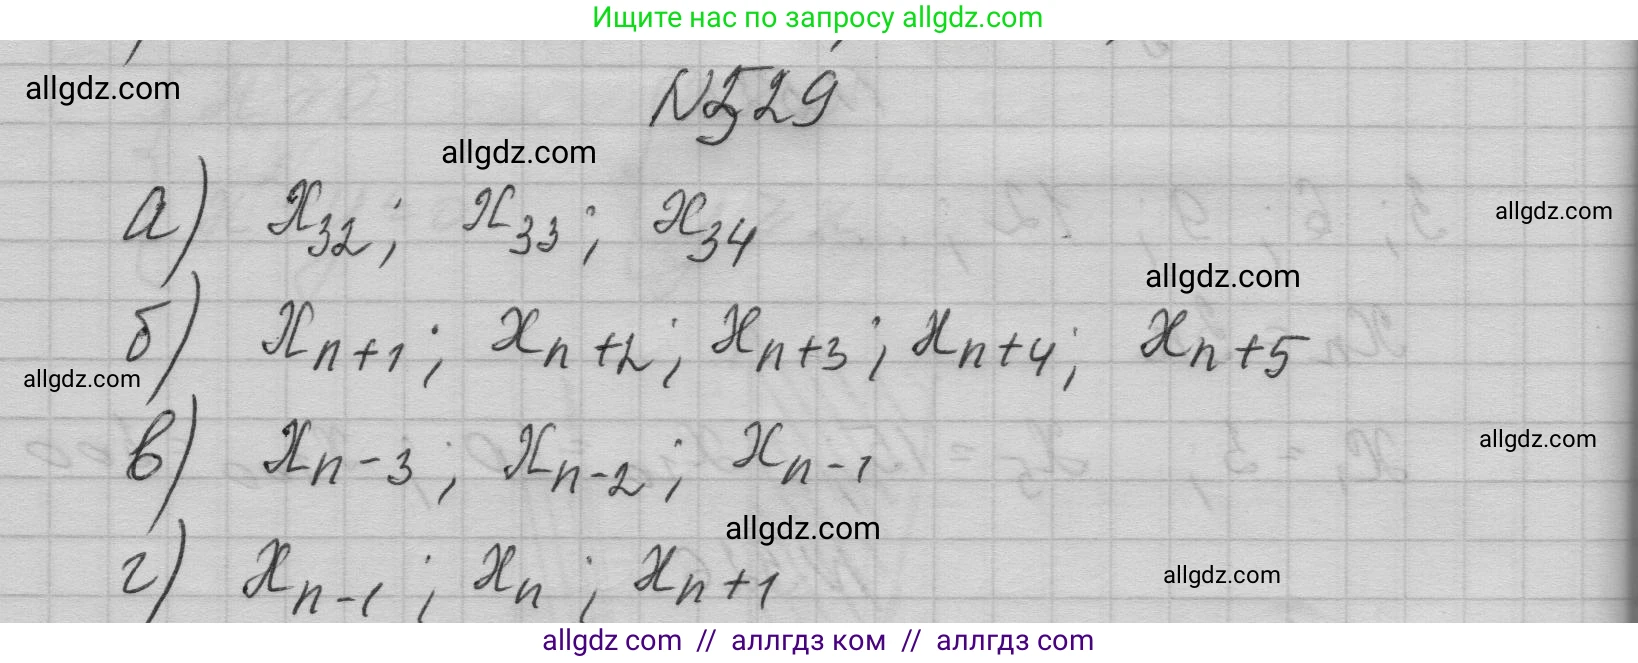 Ищите нас по запросу allgdz.com
allgdz.com
№529
allgdz.com
а) x₃₂; x₃₃; x₃₄
allgdz.com
allgdz.com
б) xₙ₊₁; xₙ₊₂; xₙ₊₃; xₙ₊₄; xₙ₊₅
allgdz.com
allgdz.com
в) xₙ₋₃; xₙ₋₂; xₙ₋₁
allgdz.com
г) xₙ₋₁; xₙ; xₙ₊₁
allgdz.com
allgdz com // аллгдз ком // аллгдз com